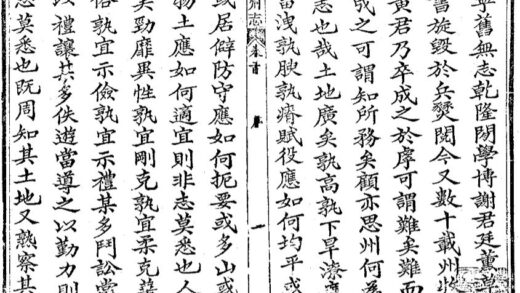 寧舊無志乾隆閒學博謝君廷薰草
舊旋毀於兵燹閱今又數十載州牧
黃君乃卒成之於虖可謂難矣難而
成之可謂知所務矣顧亦思州何為
志也哉土地廣矣孰高孰下旱潦應
畱洩孰腴孰瘠賦役應如何均平或
州志 卷首 序 一
或居僻防守應如何扼要或多山或
物土應如何適宜則非志莫悉也人
矣勁靡異性孰宜剛克孰宜柔克
俗孰宜示儉孰宜示禮某多鬥訟當
以禮讓其多佚遊當導之以勤力則
志莫悉也既周知其土地又熟察其